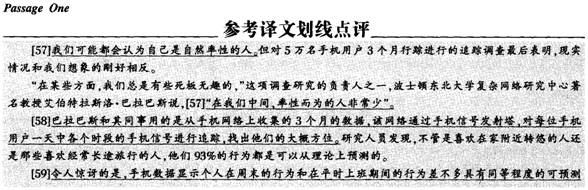 Passage One
参考译文划线点评
[57]我们可能都会认为自己是自然率性的人。但对5万名手机用户3个月行踪进行的追踪调查最后表明,现实
情况和我们想象的刚好相反。
“在某些方面,我们总是有些死板无趣的,”这项调查研究的负责人之一,波士顿东北大学复杂网络研究中心著
名教授艾伯特拉斯洛·巴拉巴斯说,[57]“在我们中间,率性而为的人非常少”。
[58]巴拉巴斯和其同事用的是从手机网络上收集的3个月的数据,该网络通过手机信号发射塔,对每位手机
用户一天中各个时段的手机信号进行追踪,找出他们的大概方位。研究人员发现,不管是喜欢在家附近转悠的人还
是那些喜欢经常长途旅行的人,他们93%的行为都是可以从理论上预测的。
[59]令人惊讶的是,手机数据显示个人在周末的行为和在平时上班期间的行为差不多具有同等程度的可预测